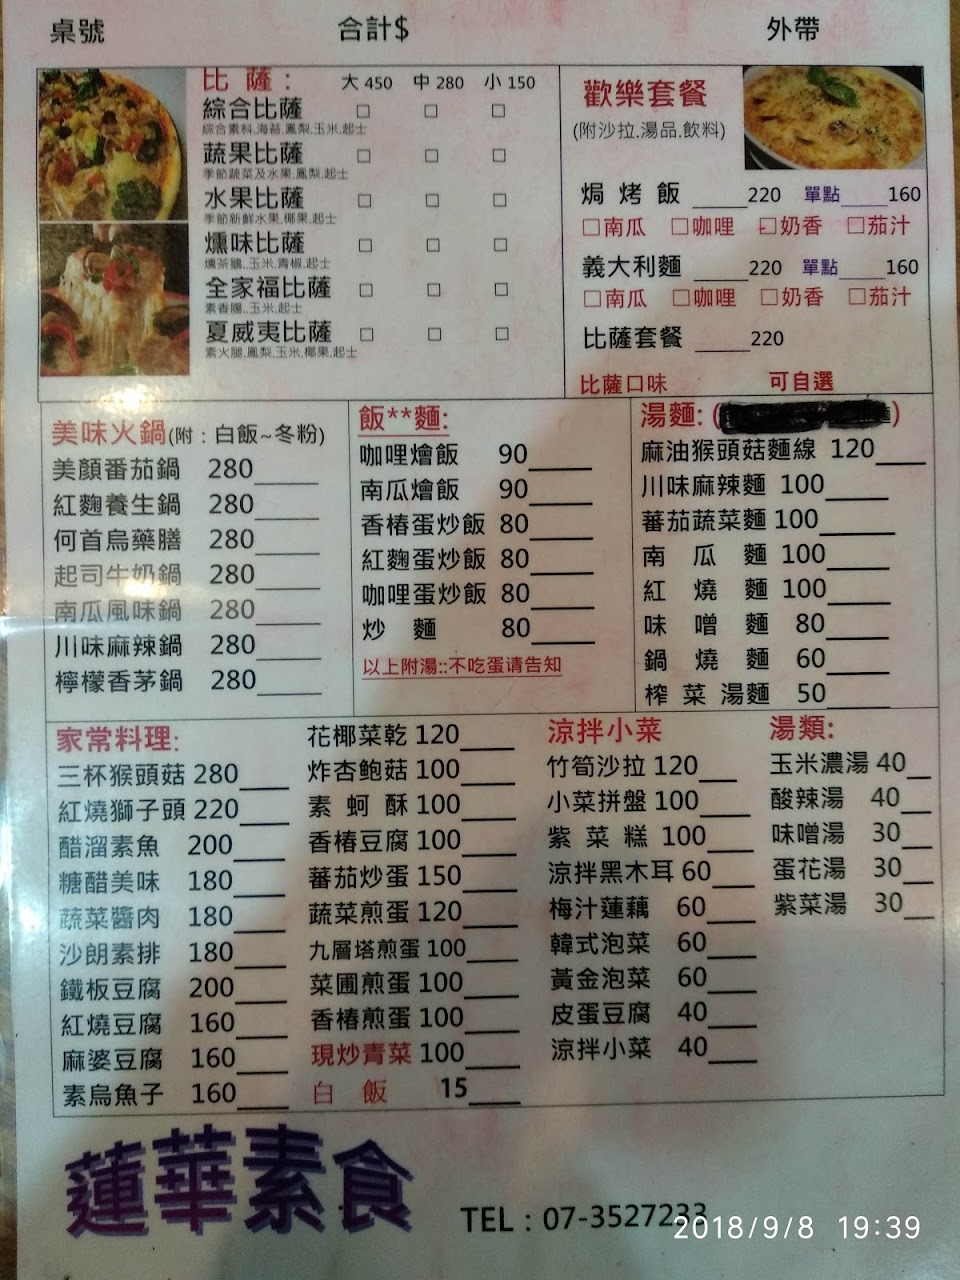 桌號 合計$ 外帶
比薩： 大 450 中 280 小 150
綜合比薩 □ □ □
綜合素料.海苔.鳳梨.玉米.起士
蔬果比薩 □ □ □
季節蔬菜及水果.鳳梨.起士
水果比薩 □ □ □
季節新鮮水果.椰果.起士
燻味比薩 □ □ □
燻茶鵝..玉米.青椒.起士
全家福比薩 □ □ □
素香腸..玉米.起士
夏威夷比薩 □ □ □
素火腿.鳳梨.玉米.椰果.起士
歡樂套餐
(附沙拉.湯品.飲料)
焗烤飯 _____220 單點_____160
□南瓜 □咖哩 □奶香 □茄汁
義大利麵 _____220 單點_____160
□南瓜 □咖哩 □奶香 □茄汁
比薩套餐 _____220
比薩口味 可自選
美味火鍋(附：白飯~冬粉)
美顏番茄鍋 280_____
紅麴養生鍋 280_____
何首烏藥膳 280_____
起司牛奶鍋 280_____
南瓜風味鍋 280_____
川味麻辣鍋 280_____
檸檬香茅鍋 280_____
飯**麵:
咖哩燴飯 90_____
南瓜燴飯 90_____
香椿蛋炒飯 80_____
紅麴蛋炒飯 80_____
咖哩蛋炒飯 80_____
炒 麵 80_____
以上附湯::不吃蛋请告知
湯麵: ( 麵)
麻油猴頭菇麵線 120____
川味麻辣麵 100_____
蕃茄蔬菜麵 100_____
南 瓜 麵 100_____
紅 燒 麵 100_____
味 噌 麵 80_____
鍋 燒 麵 60_____
榨 菜 湯麵 50_____
家常料理:
三杯猴頭菇 280____
紅燒獅子頭 220____
醋溜素魚 200____
糖醋美味 180____
蔬菜醬肉 180____
沙朗素排 180____
鐵板豆腐 200____
紅燒豆腐 160____
麻婆豆腐 160____
素烏魚子 160____
花椰菜乾 120____
炸杏鮑菇 100____
素 蚵 酥 100____
香椿豆腐 100____
蕃茄炒蛋 150____
蔬菜煎蛋 120____
九層塔煎蛋 100____
菜圃煎蛋 100____
香椿煎蛋 100____
現炒青菜 100____
白 飯 15____
涼拌小菜
竹筍沙拉 120___
小菜拼盤 100____
紫 菜 糕 100____
涼拌黑木耳 60____
梅汁蓮藕 60____
韓式泡菜 60____
黃金泡菜 60____
皮蛋豆腐 40____
涼拌小菜 40____
湯類:
玉米濃湯 40__
酸辣湯 40___
味噌湯 30___
蛋花湯 30___
紫菜湯 30___
蓮華素食
TEL：07-3527233
2018/9/8 19:39